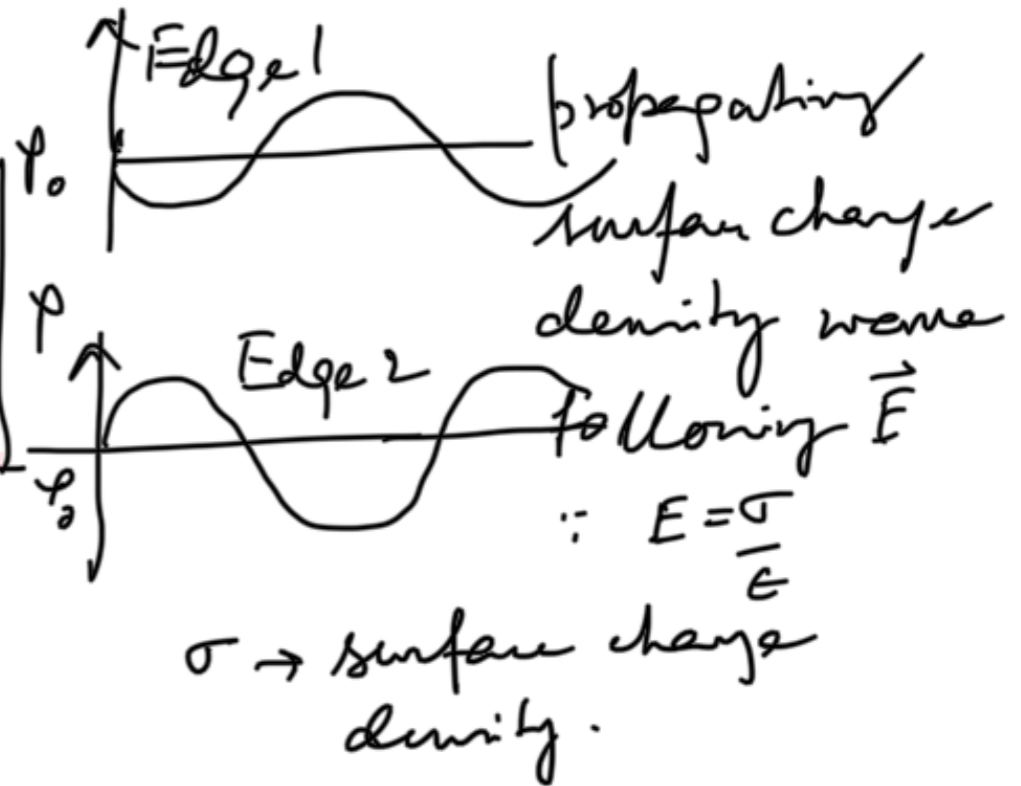 Edge 1
φ₀
propagating
surface charge
density wave
φ
Edge 2
following E⃗
φ₀
∵ E = σ/ϵ
σ → surface charge
density.